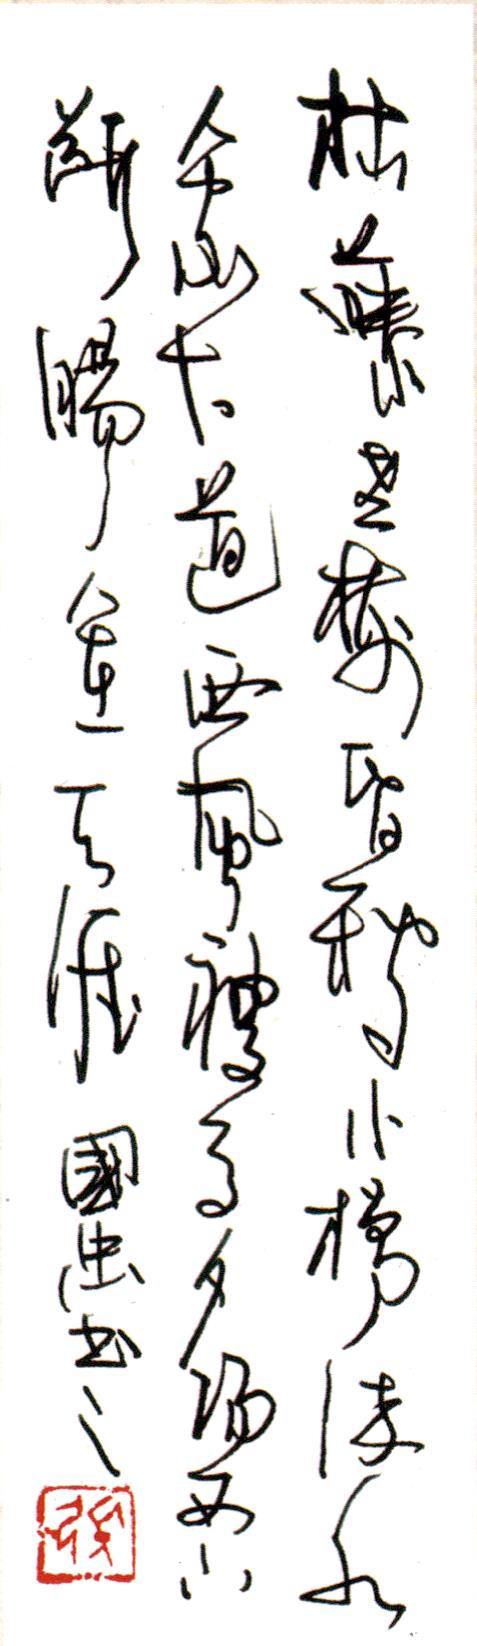 枯藤老樹昏鴉小橋流水
人家古道西風瘦馬夕陽西下
斷腸人在天涯 國忠书之